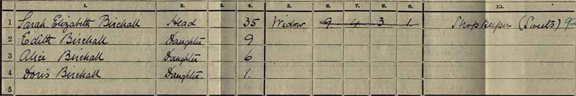 1. 2. 3. 4. 5. 6. 7. 8. 9. 10.
1 Sarah Elizabeth Birchall Head 35 Widow 9 4 3 1 Shopkeeper (Sweets)
2 Edith Birchall Daughter 9
3 Alice Birchall Daughter 6
4 Doris Birchall Daughter 1
5